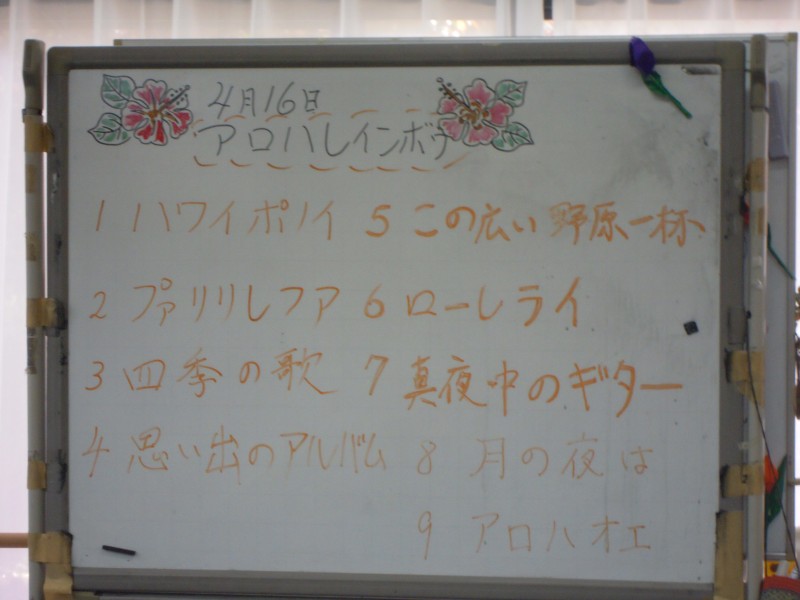 4月16日
アロハレインボウ
1 ハワイポノイ 5 この広い野原一杯
2 プァリリレフア 6 ローレライ
3 四季の歌 7 真夜中のギター
4 思い出のアルバム 8 月の夜は
9 アロハオエ